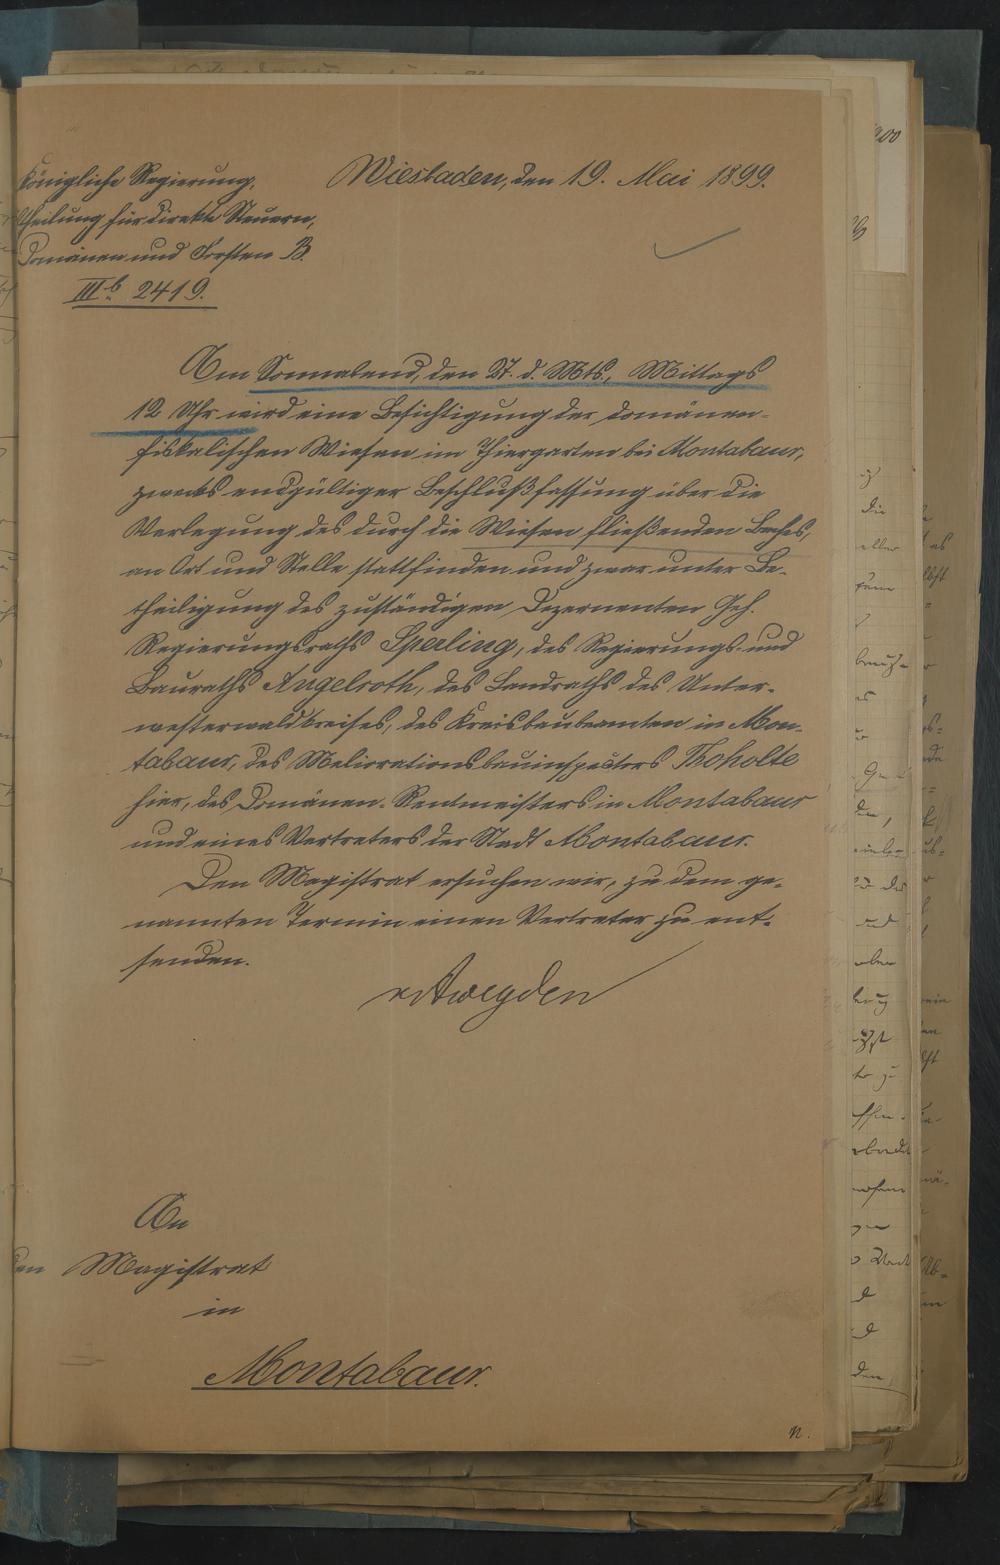 Königliche Regierung,
Wiesbaden, den 19. Mai 1899.
theilung für direkte Steuern,
Domänen und Forsten B.
IIIb 2419.
Am Sonnabend, den 27. d. Mts., Mittags
12 Uhr wird eine Besichtigung der domänen-
fiskalischen Wiesen im Thiergarten bei Montabaur,
zwecks endgültiger Beschlußfassung über die
Verlegung des durch die Wiesen fließenden Baches,
an Ort und Stelle stattfinden und zwar unter Be-
theiligung des zuständigen Dezernenten Geh.
Regierungsraths Sperling, des Regierungs- und
Bauraths Angelroth, des Landraths des Unter-
westerwaldkreises, des Kreisbaubeamten in Mon-
tabaur, des Meliorationsbauinspectors Thoholte
hier, des Domänen-Rentmeisters in Montabaur
und eines Vertreters der Stadt Montabaur.
Den Magistrat ersuchen wir, zu dem ge-
nannten Termin einen Vertreter zu ent-
senden.
An
den Magistrat
in
Montabaur.
n.